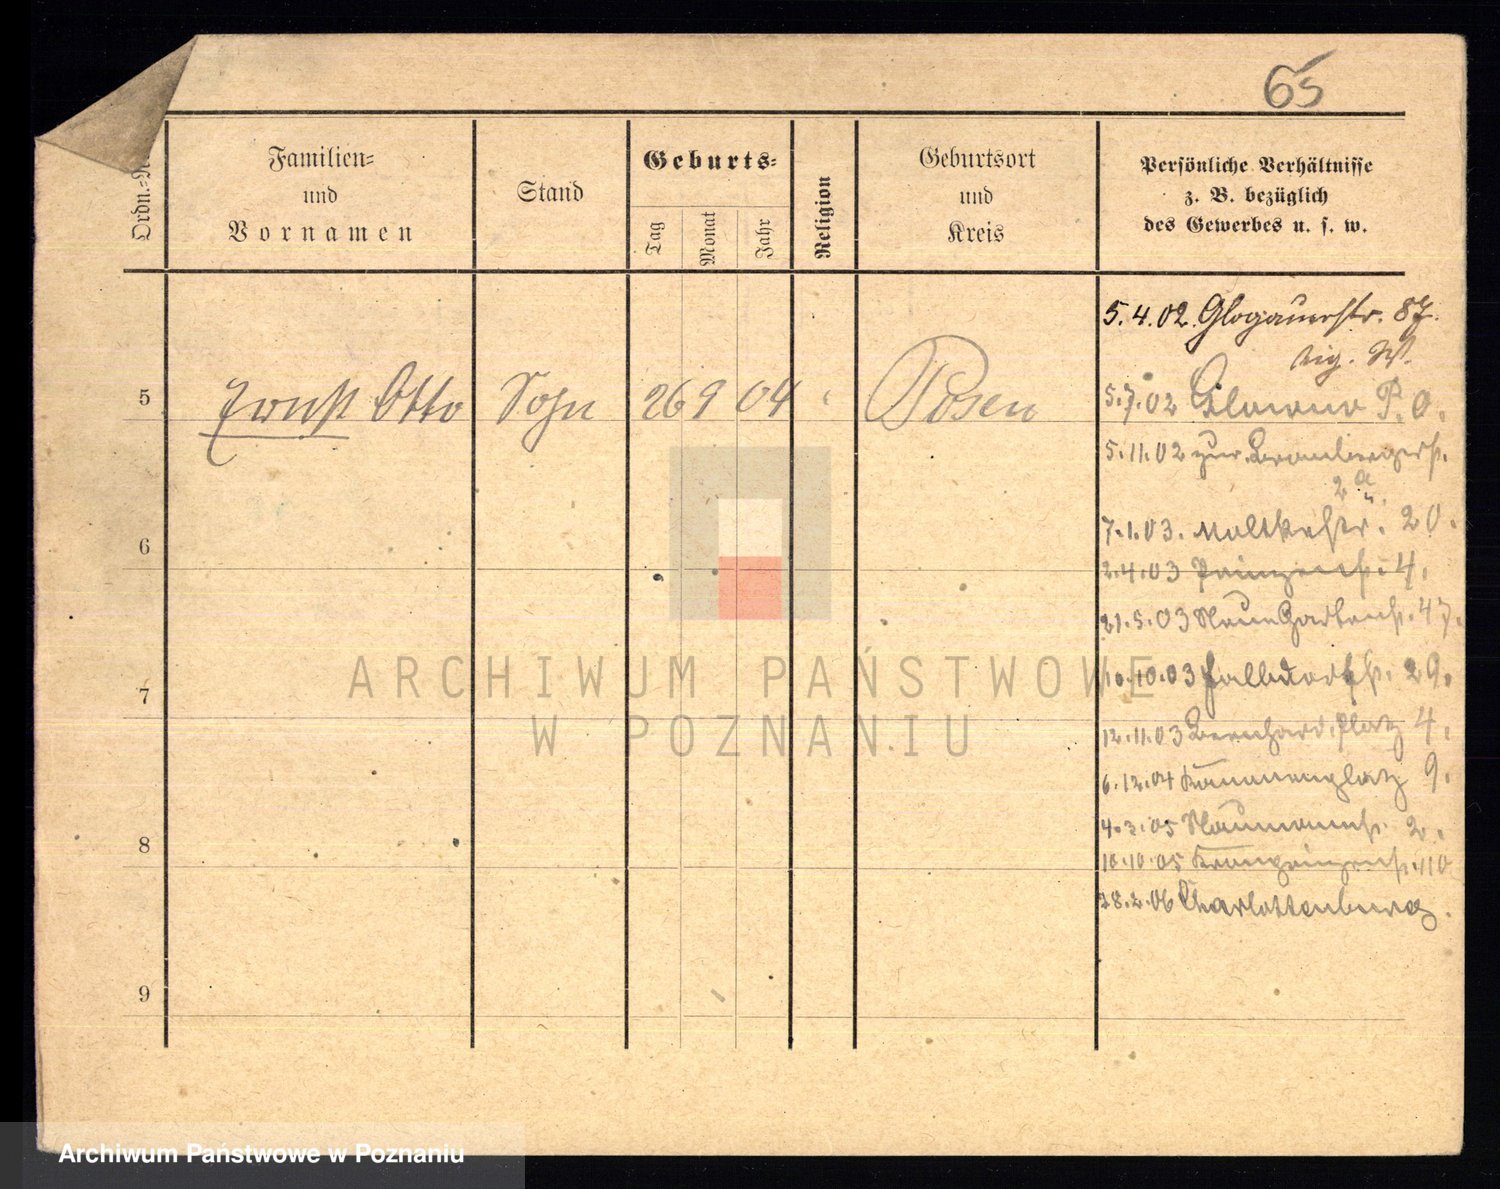 65
Ordn.=N
Familien=
und
Vornamen
Stand
Geburts=
Tag
Monat
Jahr
Religion
Geburtsort
und
Kreis
Persönliche Verhältnisse
z. B. bezüglich
des Gewerbes u. s. w.
5.4.02. Glogauerstr. 87.
5 Ernst Otto Sohn 26 9 04 Posen
5.7.02 P. O.
5.11.02 zur Brombergerstr.
2a
6
7.1.03. Moltkestr. 20.
2.4.03 Prinzenstr. 4.
21.5.03 Neue Gartenstr. 47.
7
10.10.03 29.
12.11.03 Bernhard. platz 4.
6.12.04 Kanonenplatz 9.
8
4.3.05 Naumannstr. 2.
10.10.05 Kronprinzenstr. 110
28.2.06 Charlottenburg.
9
ARCHIWUM PAŃSTWOWE
W POZNANIU
Archiwum Państwowe w Poznaniu